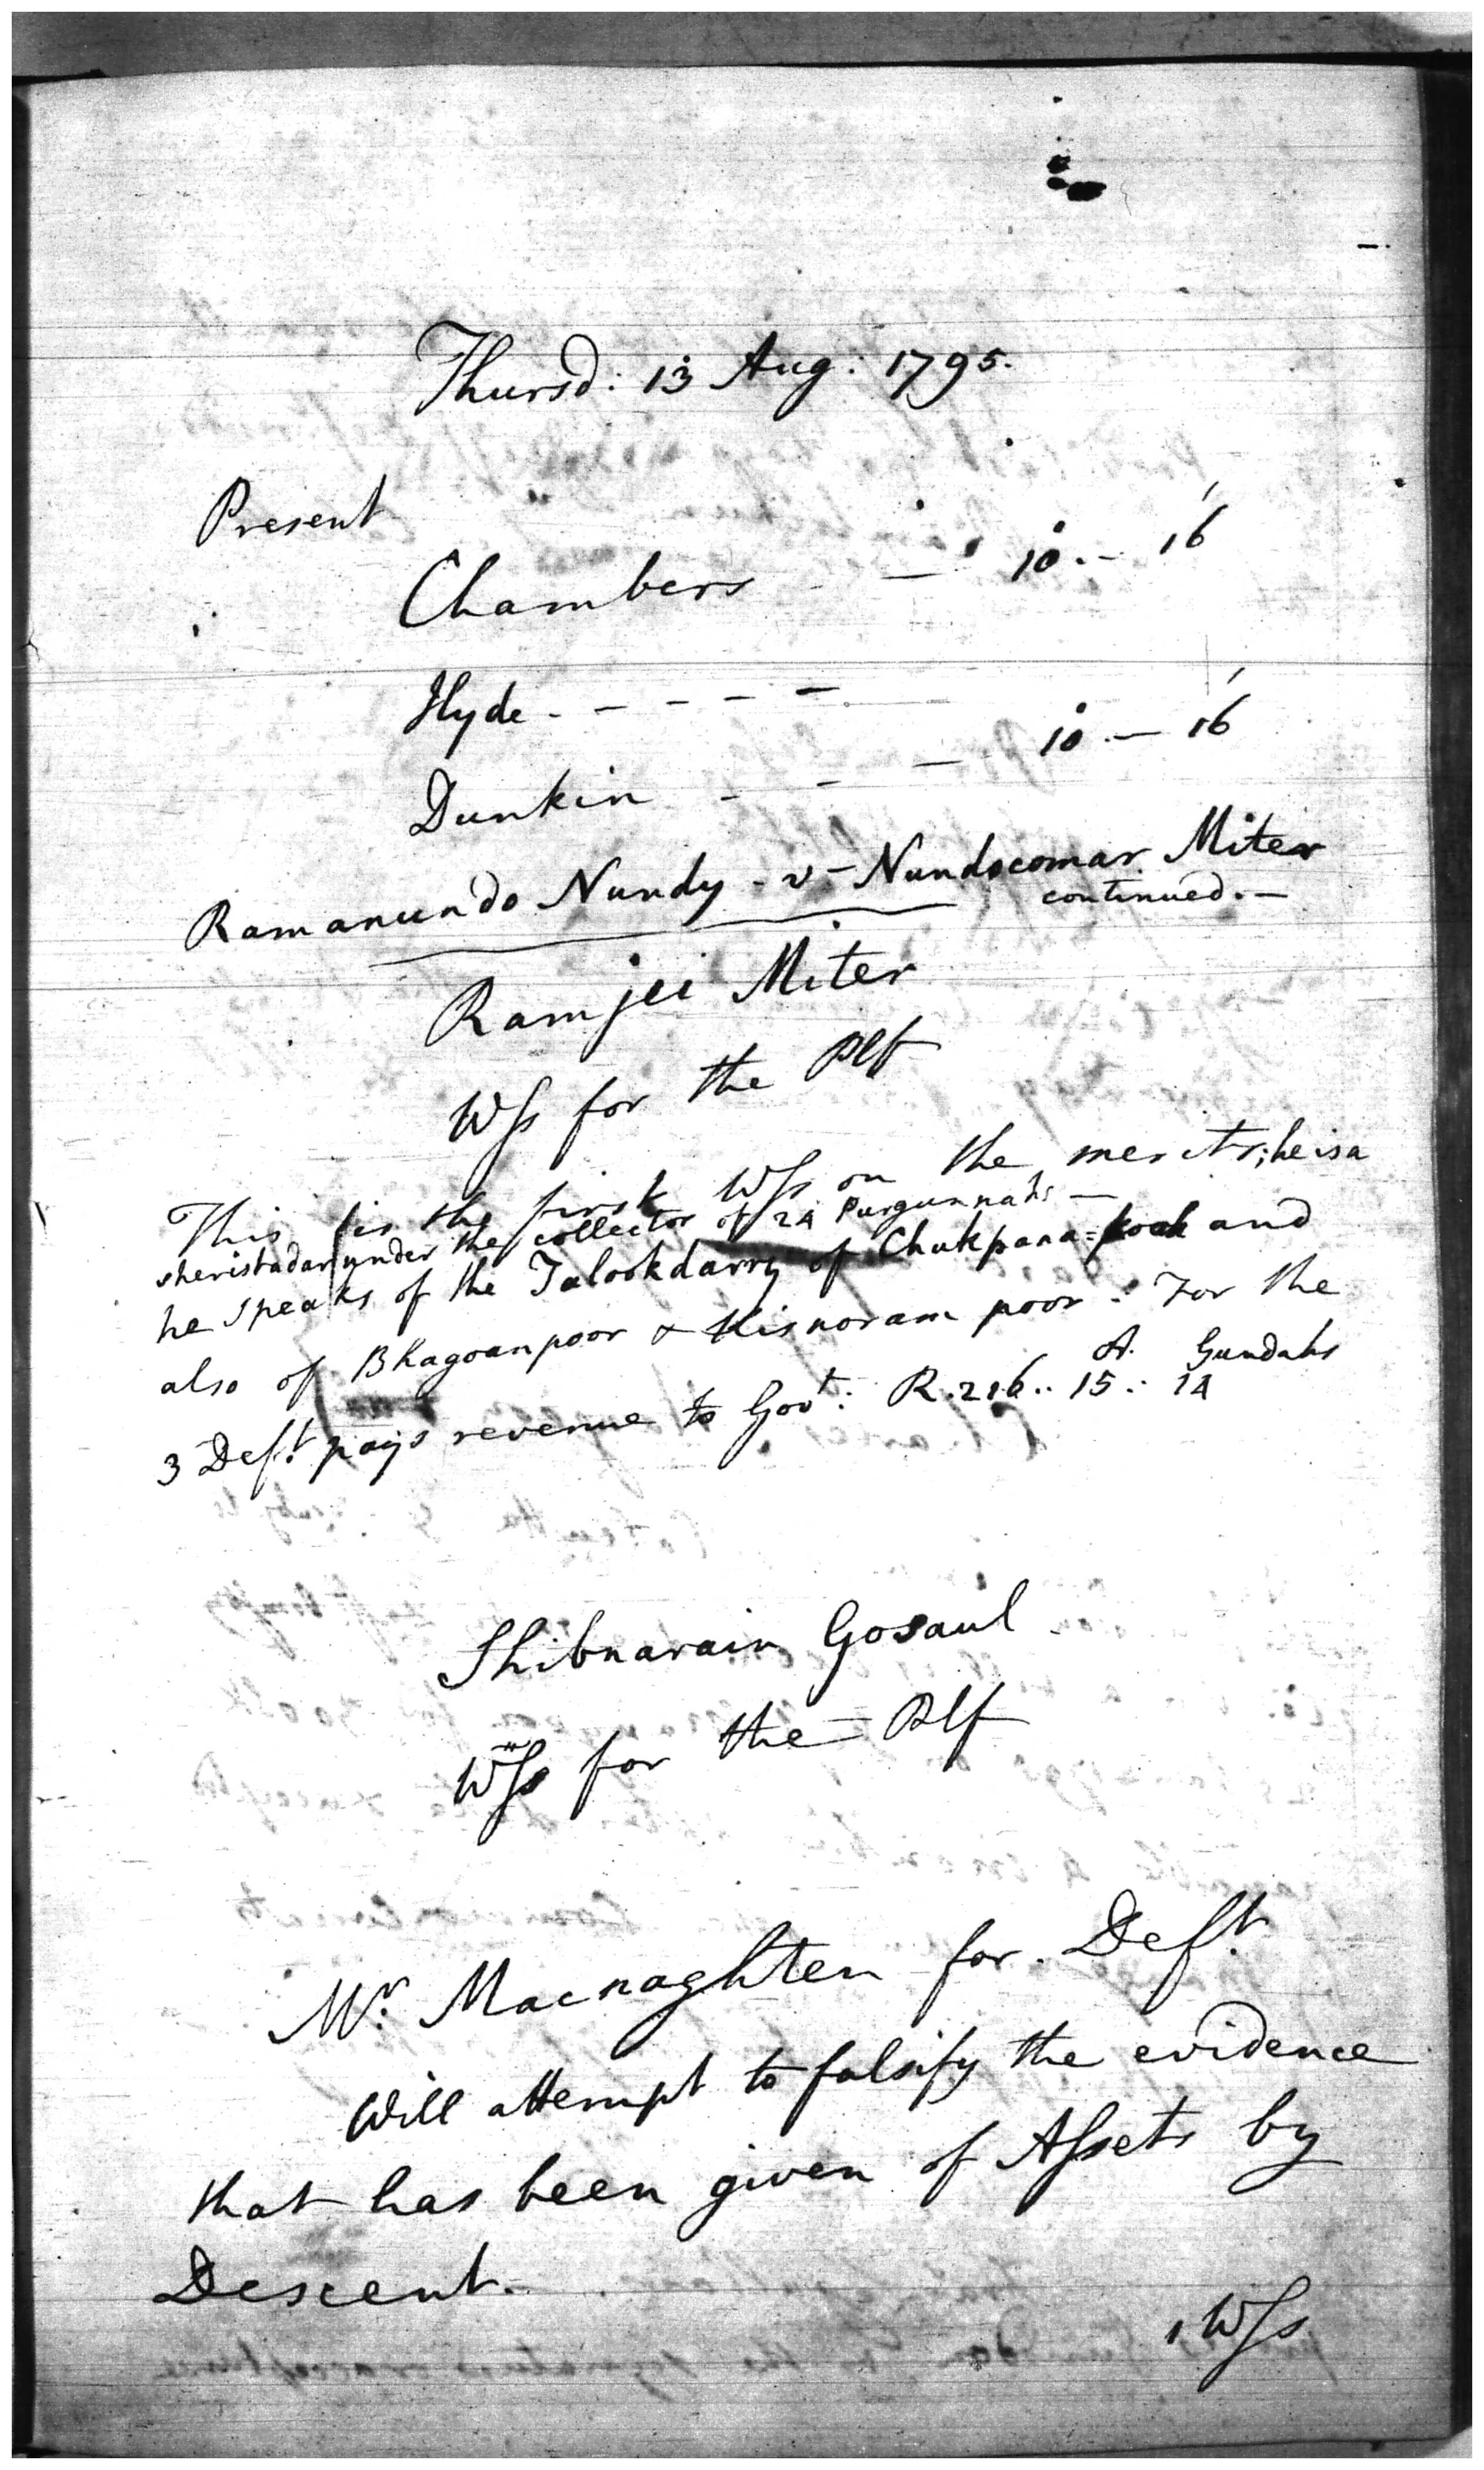 Thursd: 13 Aug: 1795.
Present
Chambers - - 10 .- 16
Hyde - - - - -
Dunkin - - - 10 .- 16
Ramanundo Nundy - v - Nundocomar Miter
continued.-
Ramjei Miter
Wſs for the Plf
This is the first Wſs on the merits; he is a
sheristadar under the collector of 24 Purgunnahs -
he speaks of the Talookdarry of Chukpana= and
also of Bhagoanpoor & Kisnoram poor. For the
A. Gundahs
3 Deft. pays revenue to Govt: R.216.. 15.. 14
Shibnarain Gosaul
Wſs for the Plf
Mr. Macnaghten for Deft.
Will attempt to falsify the evidence
that has been given of Aſsets by
Descent.
1 Wſs